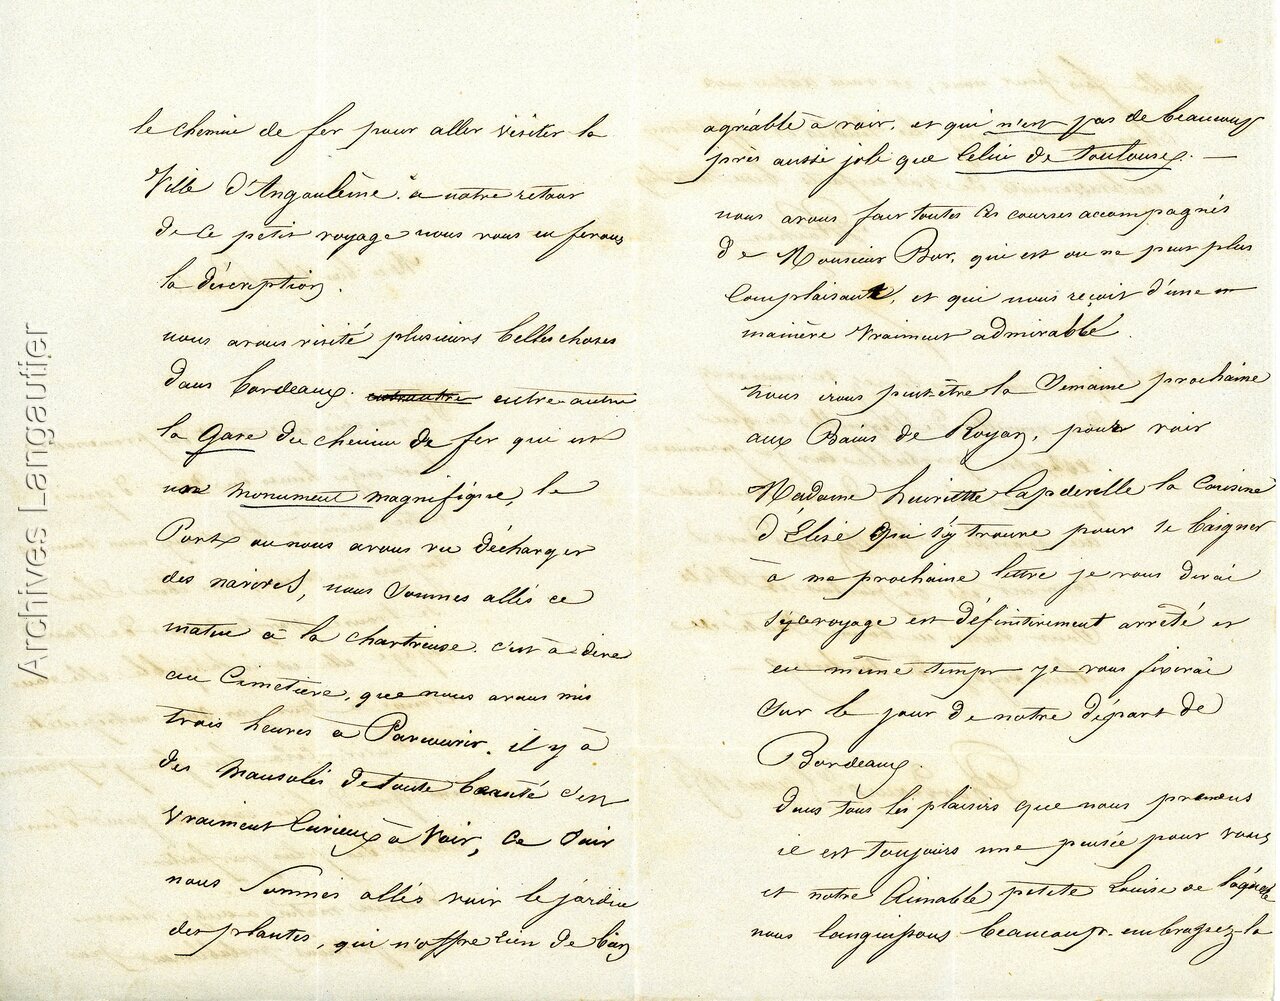 le chemin de fer pour aller visiter la
Ville d'Angoulème. a notre retour
de ce petit voyage nous vous en ferons
la déscription.
nous avons visité plusieurs belles choses
dans bordeaux. entrautre entre-autre
la Gare du chemin de fer qui est
un monument magnifique, le
Port ou nous avons vu décharger
des navires, nous sommes allés ce
matin à la chartreuse. c'est à dire
au Cimetière, que nous avons mis
trois heures a Parcourir. il y à
des mausolés de toute beauté c'est
vraiment curieux à voir, ce soir
nous sommes allés voir le jardin
des plantes, qui n'offre rien de bien
agréable à voir. et qui n'est pas de beaucoup
près aussi joli que celui de toulouse. —
nous avons fait toutes ces courses accompagnés
de Monsieur Bor, qui est on ne peut plus
complaisant, et qui nous reçoit d'une
manière vraiment admirable.
nous irons peut-être la semaine prochaine
aux Bains de Royan, pour voir
Madame henriette Capdeville la cousine
d'Elise qui s'y trouve pour se baigner
à ma prochaine lettre je vous dirai
si ce voyage est définitivement arrêté et
en même temps je vous fixerai
sur le jour de notre départ de
Bordeaux.
dans tous les plaisirs que nous prenons
il est toujours une pensée pour vous
et notre aimable petite Louise de laquelle
nous languissons beaucoup. embrassez-la
Archives Langautier